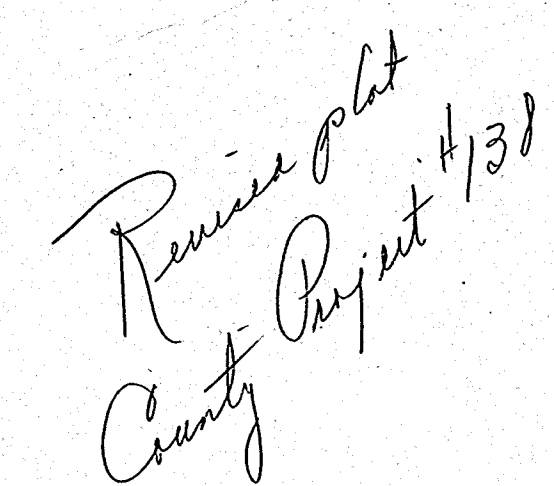 Revised plat
County Project #138